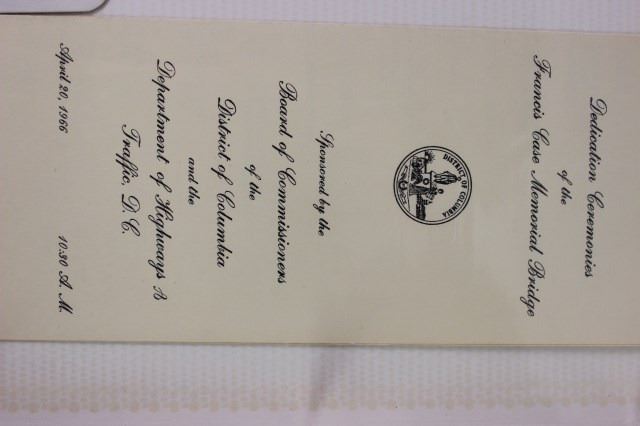 Dedication Ceremonies
of the
Francis Case Memorial Bridge
DISTRICT OF COLUMBIA
Sponsored by the
Board of Commissioners
of the
District of Columbia
and the
Department of Highways &
Traffic, D.C.
April 20, 1966 10:30 A. M.